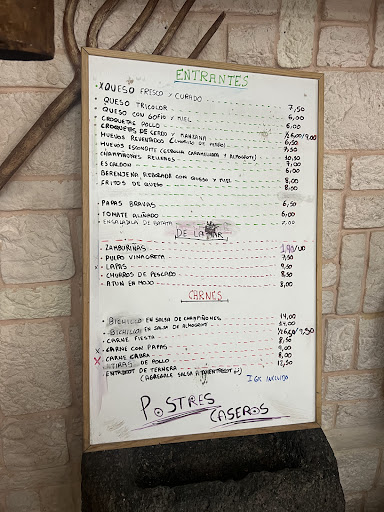 ENTRANTES
x QUESO FRESCO Y CURADO 7,50
· QUESO TRICOLOR 6,00
· QUESO CON GOFIO Y MIEL 6,00
· CROQUETAS POLLO
· CROQUETAS DE CERDO Y MANZANA
· HUEVOS REVUELTOS
· HUEVOS ESCONDITE (CEBOLLA CARAMELIZADA Y ALMOGROTE) 10,50
· CHAMPIÑONES RELLENOS 7,00
· ESCALDON 6,00
· BERENJENA REBOZADA CON QUESO Y MIEL 8,00
· FRITOS DE QUESO 8,00
· PAPAS BRAVAS 6,50
· TOMATE ALIÑADO 6,00
· ENSALADILLA DE PATATA 7,00
DE LA MAR
· ZAMBURIÑAS 1,90/UD
· PULPO VINAGRETA 7,50
x LAPAS 9,50
· CHURROS DE PESCADO 8,50
· ATUN EN MOJO 8,00
CARNES
· BICHILLO EN SALSA DE CHAMPIÑONES 14,00
· BICHILLO EN SALSA DE ALMOGROTE 14,00
· CARNE FIESTA
x CARNE CON PAPAS
x CARNE CABRA 8,00
· TIRAS DE POLLO
· ENTRECOT DE TERNERA
IGIC INCLUIDO
POSTRES
CASEROS